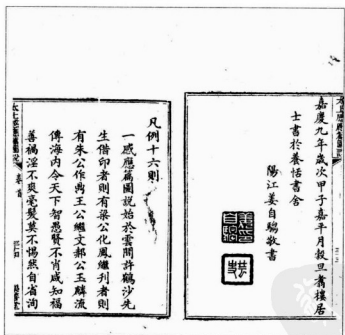 嘉慶九年歲次甲子嘉平月穀旦書樓居
士書於養恬書舍
陽江姜自騶敬書
凡例十六則
一感應篇圖說始於雲間許鶴沙先
生借印者則有梁公化鳳繼刊者則
有朱公作鼎王公繼文郝公玉麟流
傳海內今天下智愚賢不肖咸知福
善禍淫不爽毫髮莫不惕然自省洵